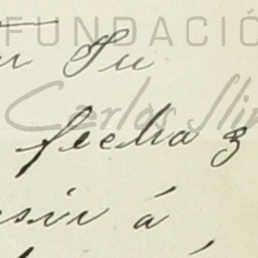 FUNDACIÓ
Su
Carlos Slim
fecha 3
á